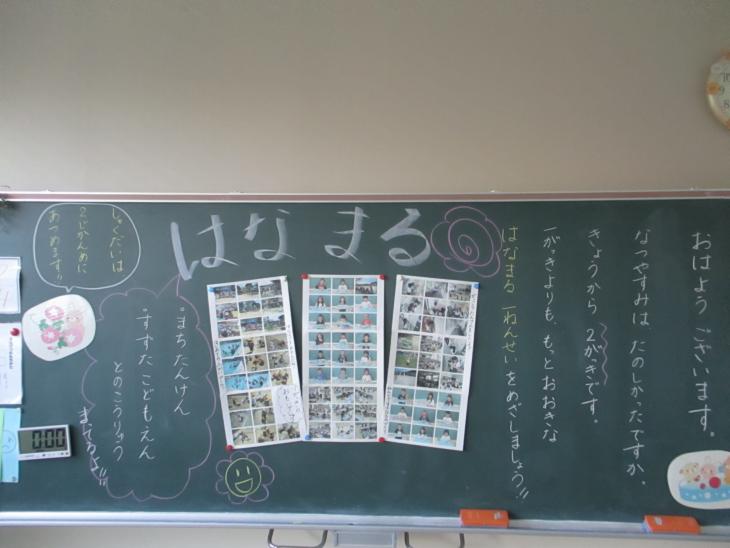 はなまる
おはよう ございます。
なつやすみは たのしかったですか。
きょうから 2がっきです。
1がっきよりも、もっとおおきな
はなまる 1ねんせいをめざしましょう!!
しゅくだいは
2じかんめに
あつめます!!
・まちたんけん
・すずたこどもえん
とのこうりゅう
までするよ!!
0:00